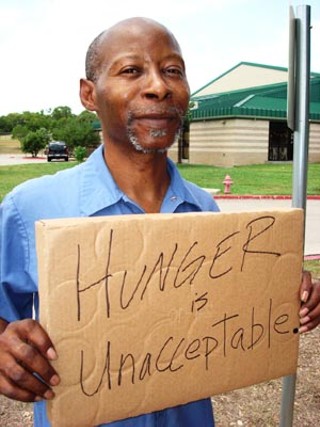 HUNGER
is
Unacceptable.